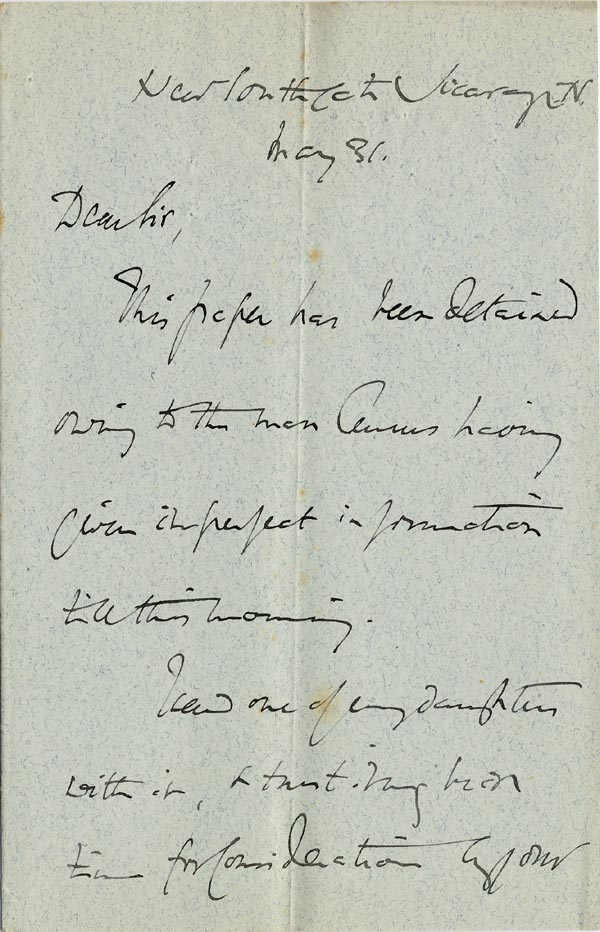 New Southgate Vicarage N.
May 31.
Dear Sir,
This paper has been detained
owing to the man having
given imperfect information
till this morning.
I send one of my daughters
with it, & trust it may be in
time for consideration by your